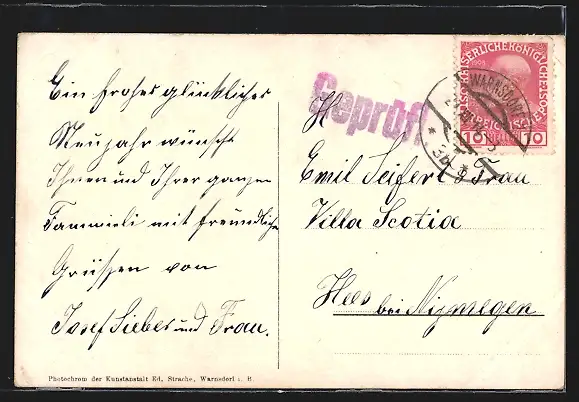 Ein frohes glückliches
Neujahr wünscht
Ihnen und Ihrer ganzen
Fammieli mit freundlichen
Grüssen von
Josef Sieber und Frau.
Photochrom der Kunstanstalt Ed. Strache, Warnsdorf i. B.
Geprüft
H
Emil Seifert & Frau
Villa Scotia
Hees bei Nijmegen
KAISERLICHE KÖNIGLICHE
10 10
WARNSDORF
* 3b *